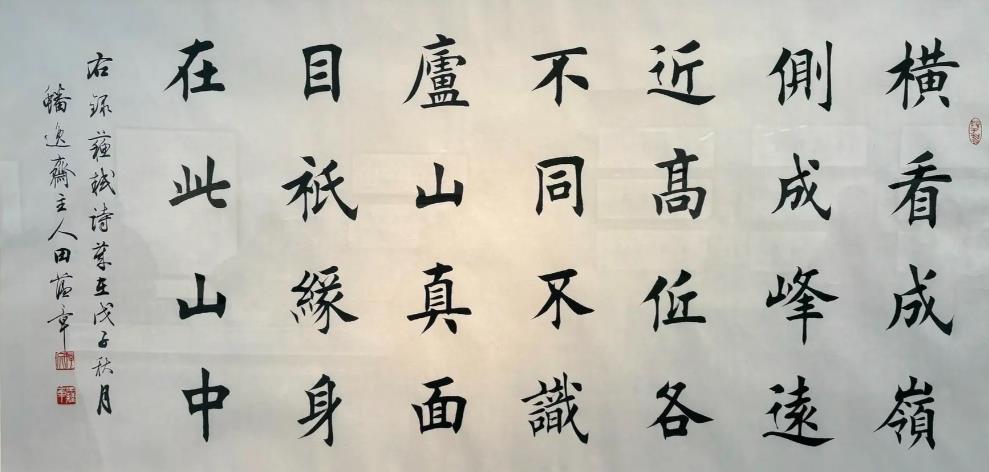 橫看成嶺
側成峰遠
近髙低各
不同不識
廬山真面
目衹緣身
在此山中
右錄蘇軾詩葉在戊子秋月
蟠逸齋主人田蘊章